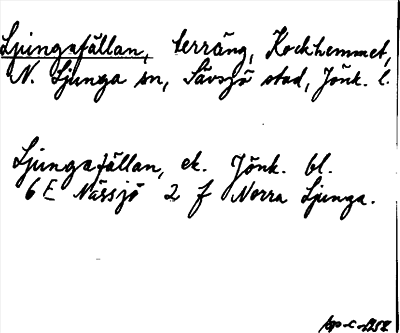 Ljungafällan, terräng, Kockhemmet,
N. Ljunga sn, Sävsjö stad, Jönk. l.
Ljungafällan, ek. Jönk. bl.
6E Nässjö 2 f Norra Ljunga.